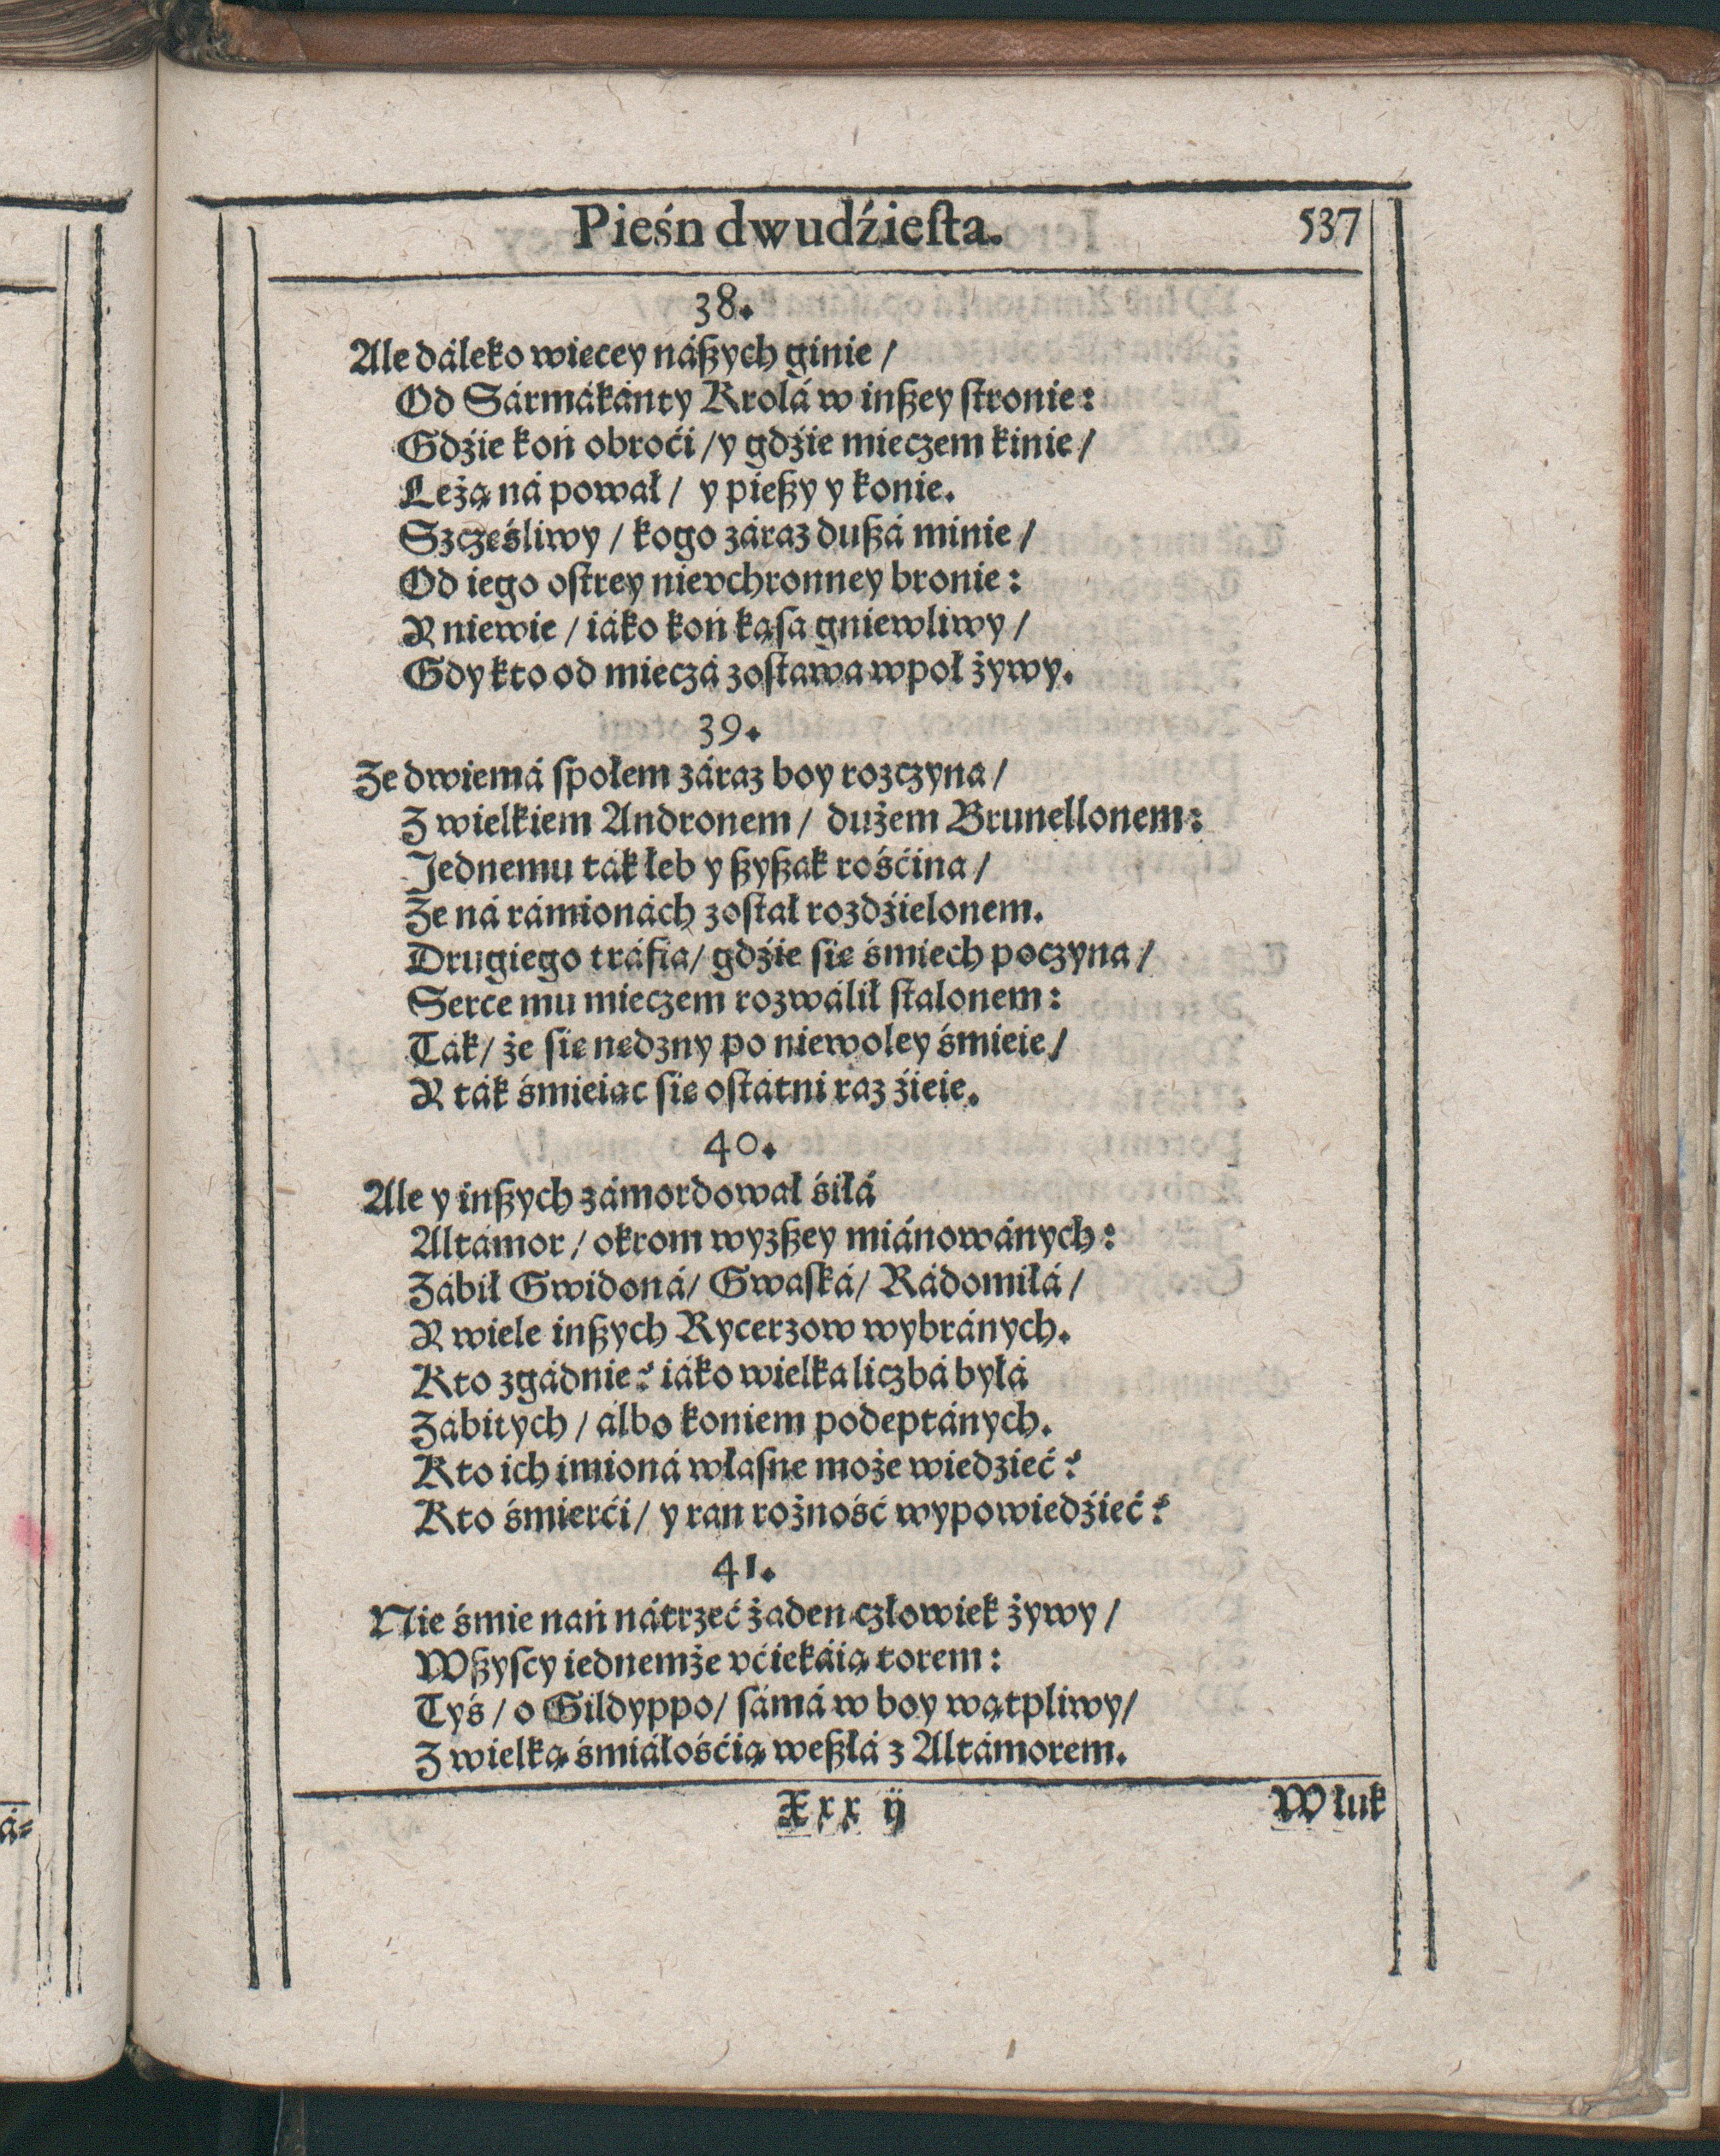 Pieśn dwudźieſta. 537
38.
Ale dáleko więcey náßych ginie /
Od Sármákánty Krolá w inßey ſtronie:
Gdźie koń obroći / y gdźie mieczem kinie /
Leżą ná pował / y pießy y konie.
Szczęśliwy / kogo záraz dußá minie /
Od iego oſtrey nievchronney bronie:
Y niewie / iáko koń kąſa gniewliwy /
Gdy kto od mieczá zoſtawa wpoł żywy.
39.
Ze dwiemá ſpołem záraz boy rozczyna /
Z wielkiem Andronem / dużem Brunellonem:
Jednemu ták łeb y ßyßak rośćina /
Że ná rámionách zoſtał rozdźielonem.
Drugiego tráfia / gdźie ſię śmiech poczyna /
Serce mu mieczem rozwálił ſtalonem:
Ták / że ſię nędzny po niewoley śmieie /
Y ták śmieiąc ſię oſtátni raz źieie.
40.
Ale y inßych zámordował śiłá
Altámor / okrom wyzßey miánowánych:
Zábił Gwidoná / Gwaſká / Rádomiłá /
Y wiele inßych Rycerzow wybránych.
Kto zgádnie? iáko wielka liczbá byłá
Zábitych / álbo koniem podeptánych.
Kto ich imioná właſne może wiedzieć?
Kto śmierći / y ran rożność wypowiedźieć?
41.
Nie śmie nań nátrzeć żaden człowiek żywy /
Wßyſcy iednemże vćiekáią torem:
Tyś / o Gildyppo / ſámá w boy wątpliwy /
Z wielką śmiáłośćią weßłá z Altámorem.
Xxx ij W łuk
á⸗